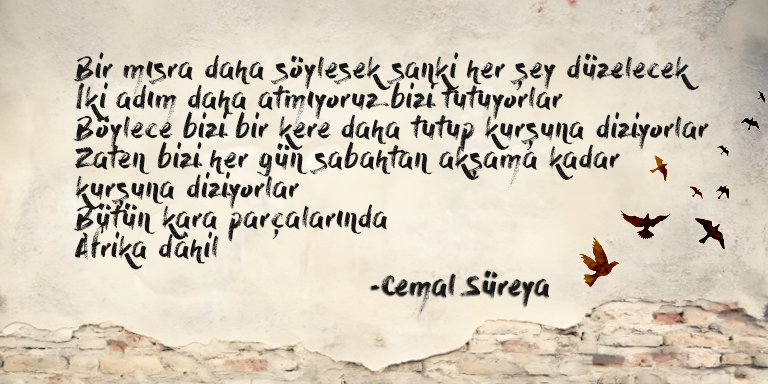 Bir mısra daha söylesek sanki her şey düzelecek
İki adım daha atmıyoruz bizi tutuyorlar
Böylece bizi bir kere daha tutup kurşuna diziyorlar
Zaten bizi her gün sabahtan akşama kadar
kurşuna diziyorlar
Bütün kara parçalarında
Afrika dahil
-Cemal Süreya